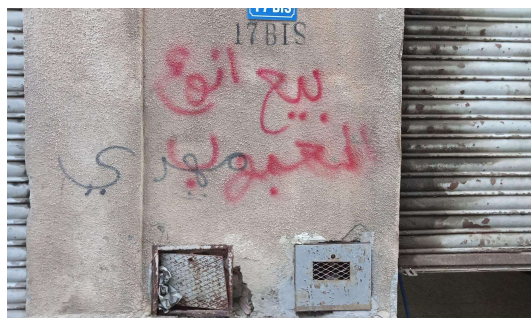 17 BIS
17 BIS
بيع انوع
الحبوب
مهدي